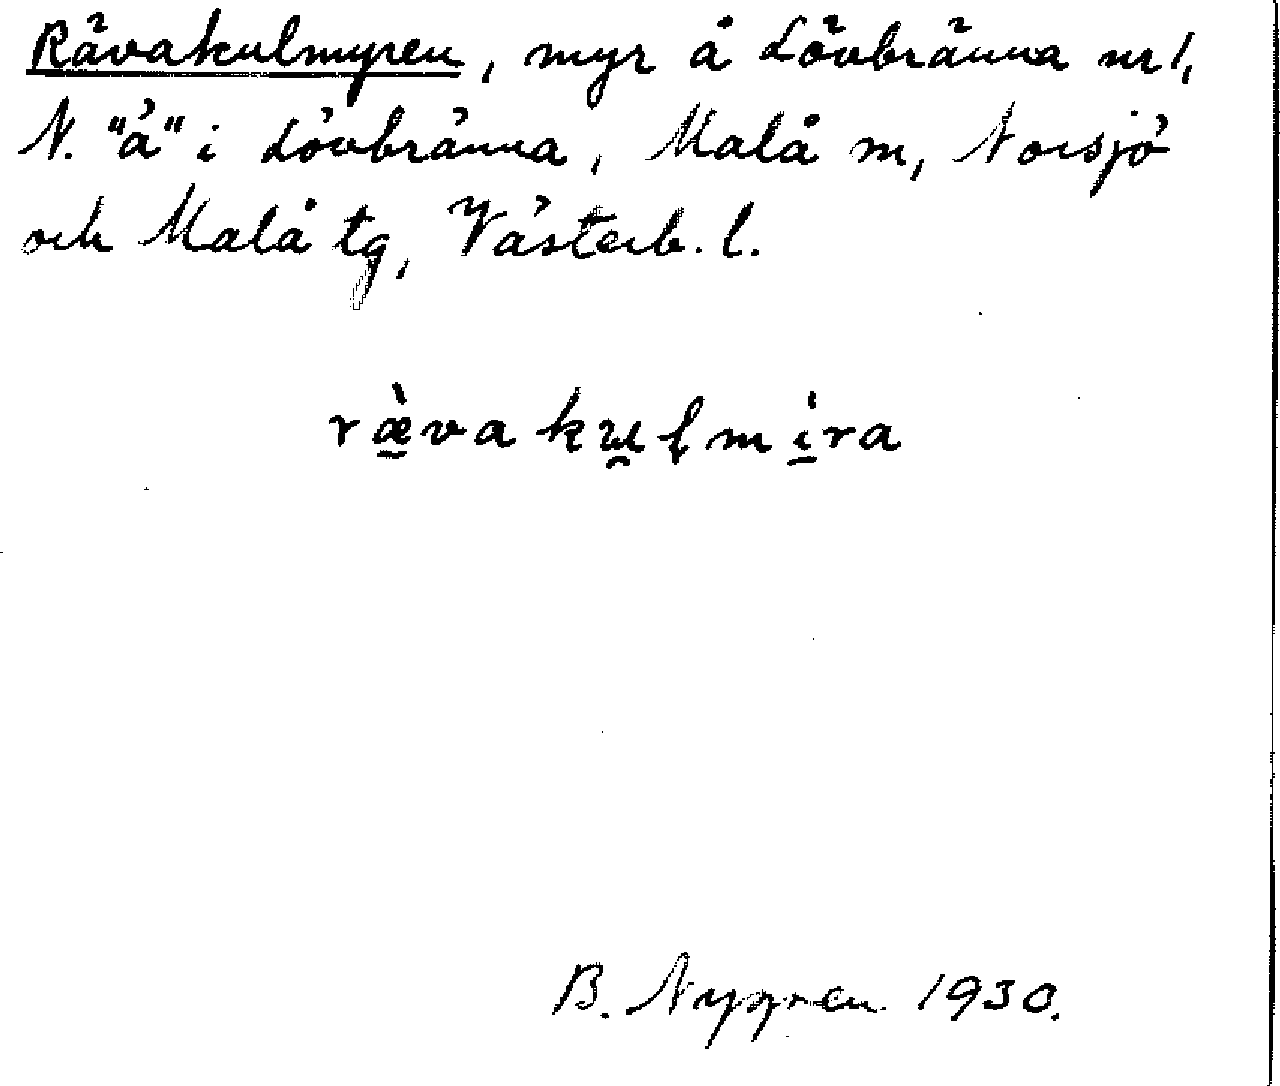 Rävakulmyren, myr å Lövbränna nr 1,
N. "å" i Lövbränna, Malå sn, Norsjö
och Malå tg, Västerb. l.
ræ̠̀vakᵫ̯ḷmi̠̍ra
B. Nygren 1930.